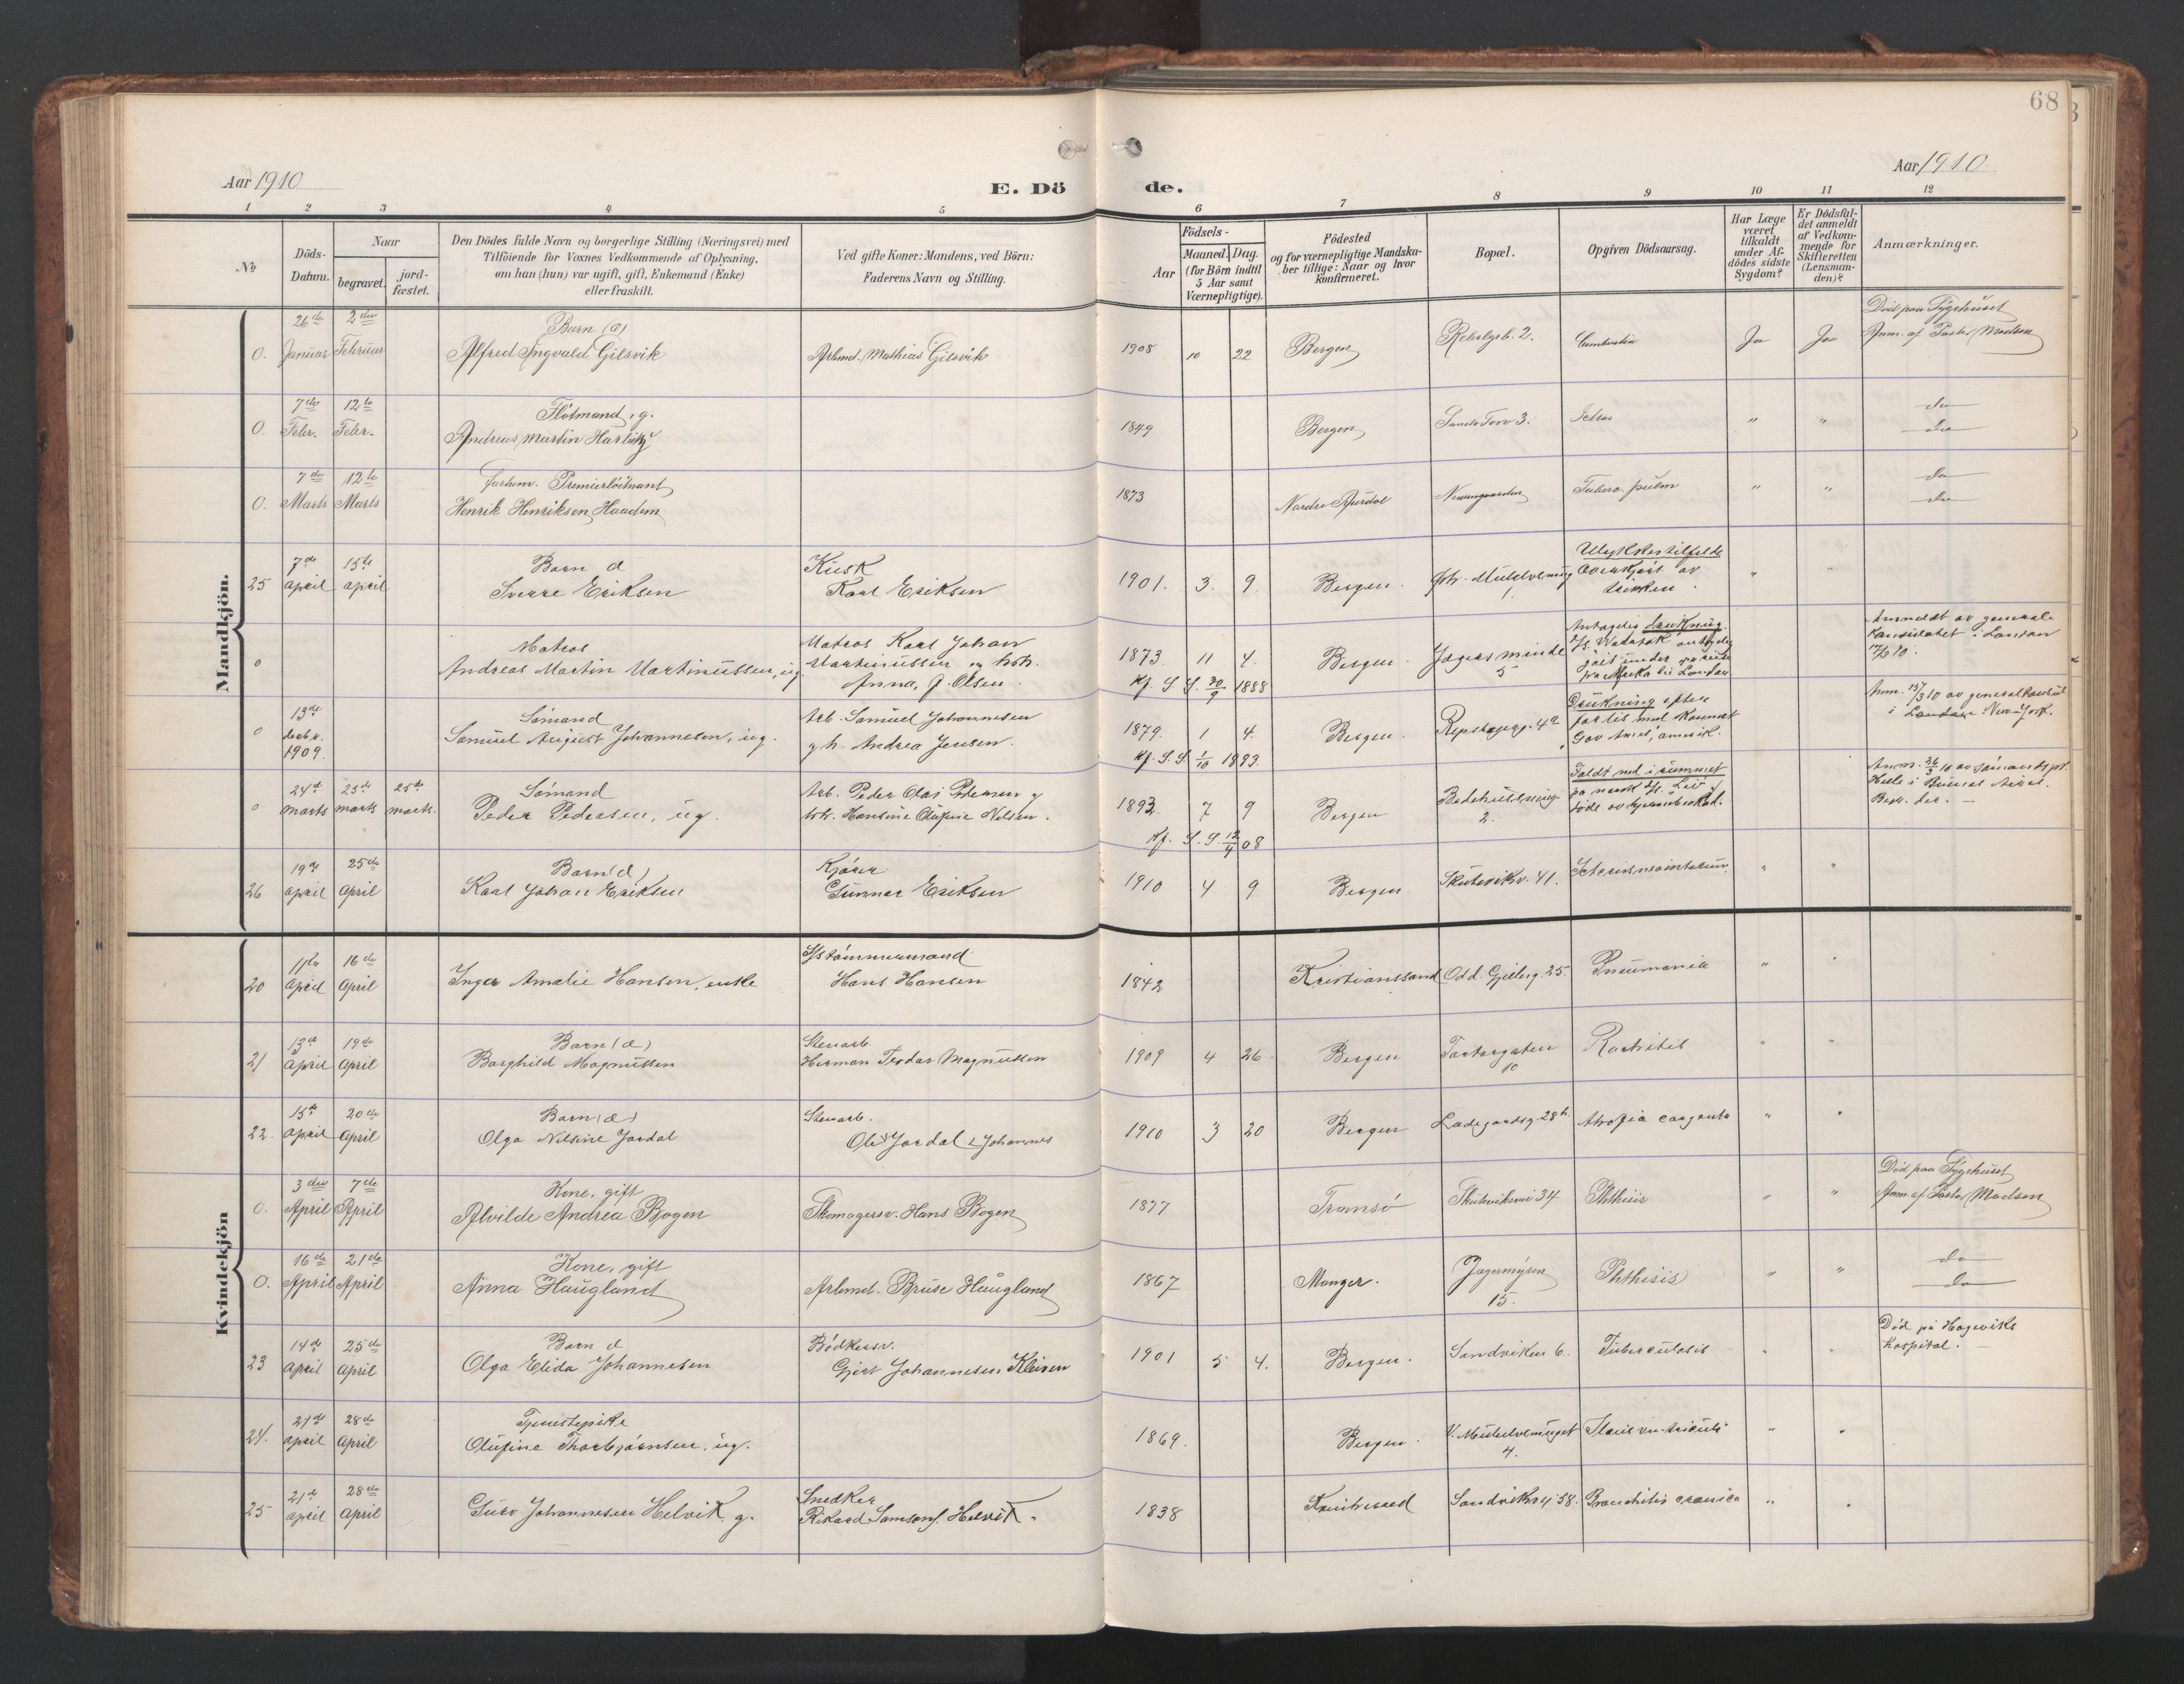 68
Aar 1910
E. Dö
de.
Aar 1910
1 2 3 4 5 6 7 8 9 10 11 12
No
Döds-
Datum.
Naar
begravet.
jord-
fæstet.
Den Dödes fulde Navn og borgerlige Stilling (Næringsvei) med
Tilföiende for Voxnes Vedkommende af Oplysning,
om han (hun) var ugift, gift, Enkemand (Enke)
eller fraskilt.
Ved gifte Koner: Mandens, ved Börn:
Faderens Navn og Stilling.
Födsels-
Aar
Maaned. Dag.
(for Börn indtil
5 Aar samt
Værnepligtige).
Födested
og for værnepligtige Mandska-
ber tillige: Naar og hvor
konfirmeret.
Bopæl.
Opgiven Dödsaarsag.
Har Læge
været
tilkaldt
under Af-
dödes sidste
Sygdom?
Er Dödsfal-
det anmeldt
af Vedkom-
mende for
Skifteretten
(Lensman-
den)?
Anmærkninger.
Mandkjön.
0. 26de Januar 2den Februar
Barn (d)
Alfred Ingvald Gilsvik
Arbmd. Mathias Gilsvik
1908 10 22 Bergen
2. Combustio Ja Ja
Död paa Sygehuset
Anm. af Pastor Madsen
0. 7de Febr. 12te Febr.
Flötmand, g.
Andreas Martin
1849 Bergen
Torv 3. " "
do
do
0. 7de Marts 12te Marts
forhenv. Premierlöitnant
Henrik Henriksen Haadem
1873 Nordre Aurdal
Neevengaarden Tuberc. pulm " "
do
do
25 7de april 15de april
Barn d
Sverre Eriksen
Kusk
Karl Eriksen
1901. 3. 9. Bergen.
1.
Ulykkestilfelde
Overkjört av
trikken. " "
0
Matros
Andreas Martin Martinussen, ug.
Matros Karl Johan
Martinussen og hstr.
Anna, J. Olsen.
1873. 11 4. Bergen.
Kf. S. S. 30/9 1888
Jægers minde
5
Antagelig drukning.
Anmeldt av general
konsulatet i London
0 13de decbr. 1909.
Sømand
Samuel August Johannesen, ug.
Arb. Samuel Johannesen
g h. Andrea Jensen.
1879. 1 4. Bergen.
Kf. S. S. 1/10 1893
Repslagerg. 4a
Drukning efter
forlis med
Anm. 15/3 10 av generalkonsul
i London New-York.
0 24de marts 25de marts 25de marts.
Sømand
Peder Pedersen, ug.
Arb. Peder Olai Pedersen g
hstr. Hansine Olufine Nilsen.
1893. 7 9 Bergen
Kf. S. S. 12/4 08
2.
Faldt ned i rummet
på norsk
Anm. 26/3 10 av sømandspr.
i Buenos Aires.
Begr. der. —
26 19de april 25de April
Barn (d)
Karl Johan Eriksen
Kjører
Gunnar Eriksen
1910 4 9 Bergen
Skutevikv. 41. Icterus neonatorum " "
Kvindekjön
20 11te April 16de April
Inger Amalie Hansen, enke
Hans Hansen
1842 Kristianssand Odd. Gjelerg. 25. Pneumonia "
21 13de April 19de April
Barn (d)
Borghild Magnussen
Stenarb.
Herman Teodor Magnussen
1909 4 26 Bergen Tartargaten
10
Rachitis " "
22. 15de April 20de April
Barn (d)
Olga Nilsine Jordal
Stenarb.
Ole Jordal Johannes
1910 3 20 Bergen Ladegaardsg. 28b. "
0. 3den April 7de April
Kone, gift
Alvilde Andrea Bogen
Skomagersv. Hans Bogen
1877 Tromsö Skutevikvei 34 Phthisis " "
Död paa Sygehuset
Anm. af Pastor Madsen
0. 16de April 21de April
Kone, gift
Anna Haugland
Arbmd. Bruse Haugland
1867 Manger. Jægermyren
15.
Phthisis " "
do
do
23 14de April 25de April
Barn d
Olga Elida Johannesen
Bödkersv.
Gjert Johannesen Kleiven
1901 5 4. Bergen. Sandviken 6. Tuberculosis " "
Död på Hageviks
Hospital.
24. 21de April 28de April
Tjenestepike
Olufine Thorbjørnsen, ug.
1869. Bergen.
4.
" "
25 21de April 28de April
Guro Johannesen Helvik g.
Snedker
Rikard Samsons. Helvik.
1838 Sandvikv. 58. Bronchitis cronica " "